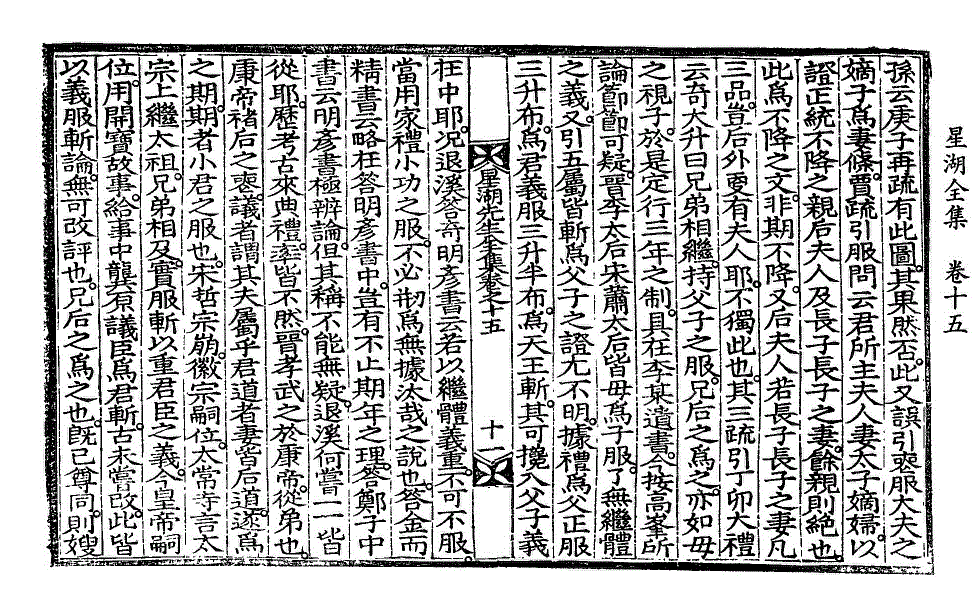 星湖全集 卷十五
孫云庚子再疏有此圖其果然否此又誤引喪服大夫之
嫡子爲妻條賈疏引服問云君所主夫人妻大子嫡婦以
證正統不降之親后夫人及長子長子之妻餘親則絶也
此爲不降之文非期不降又后夫人若長子長子之妻凡
三品豈后外更有夫人耶不獨此也其三疏引丁卯大禮
云奇大升曰兄弟相繼持父子之服兄后之爲之亦如母
之視子於是定行三年之制具在李某遺書今按高峯所
論節節可疑晉李太后宋蕭太后皆母爲子服了無繼體
之義又引五屬皆斬爲父子之證尤不明據禮爲父正服
三升布爲君義服三升半布爲天王斬其可攙入父子義
星湖先生全集卷之十五 十一
在中耶况退溪答奇明彥書云若以繼體義重不可不服
當用家禮小功之服不必刱爲無據汰哉之說也答金而
精書云略在答明彥書中豈有不止期年之理答鄭子中
書云明彥書極辨論但其稱不能無疑退溪何嘗一一皆
從耶歷考古來典禮率皆不然晉孝武之於康帝從弟也
康帝褚后之喪議者謂其夫屬乎君道者妻皆后道遂爲
之期期者小君之服也宋哲宗崩徽宗嗣位太常寺言太
宗上繼太祖兄弟相及實服斬以重君臣之義今皇帝嗣
位用開寶故事給事中龔原議臣爲君斬古未嘗改此皆
以義服斬論無可改評也兄后之爲之也旣已尊同則嫂